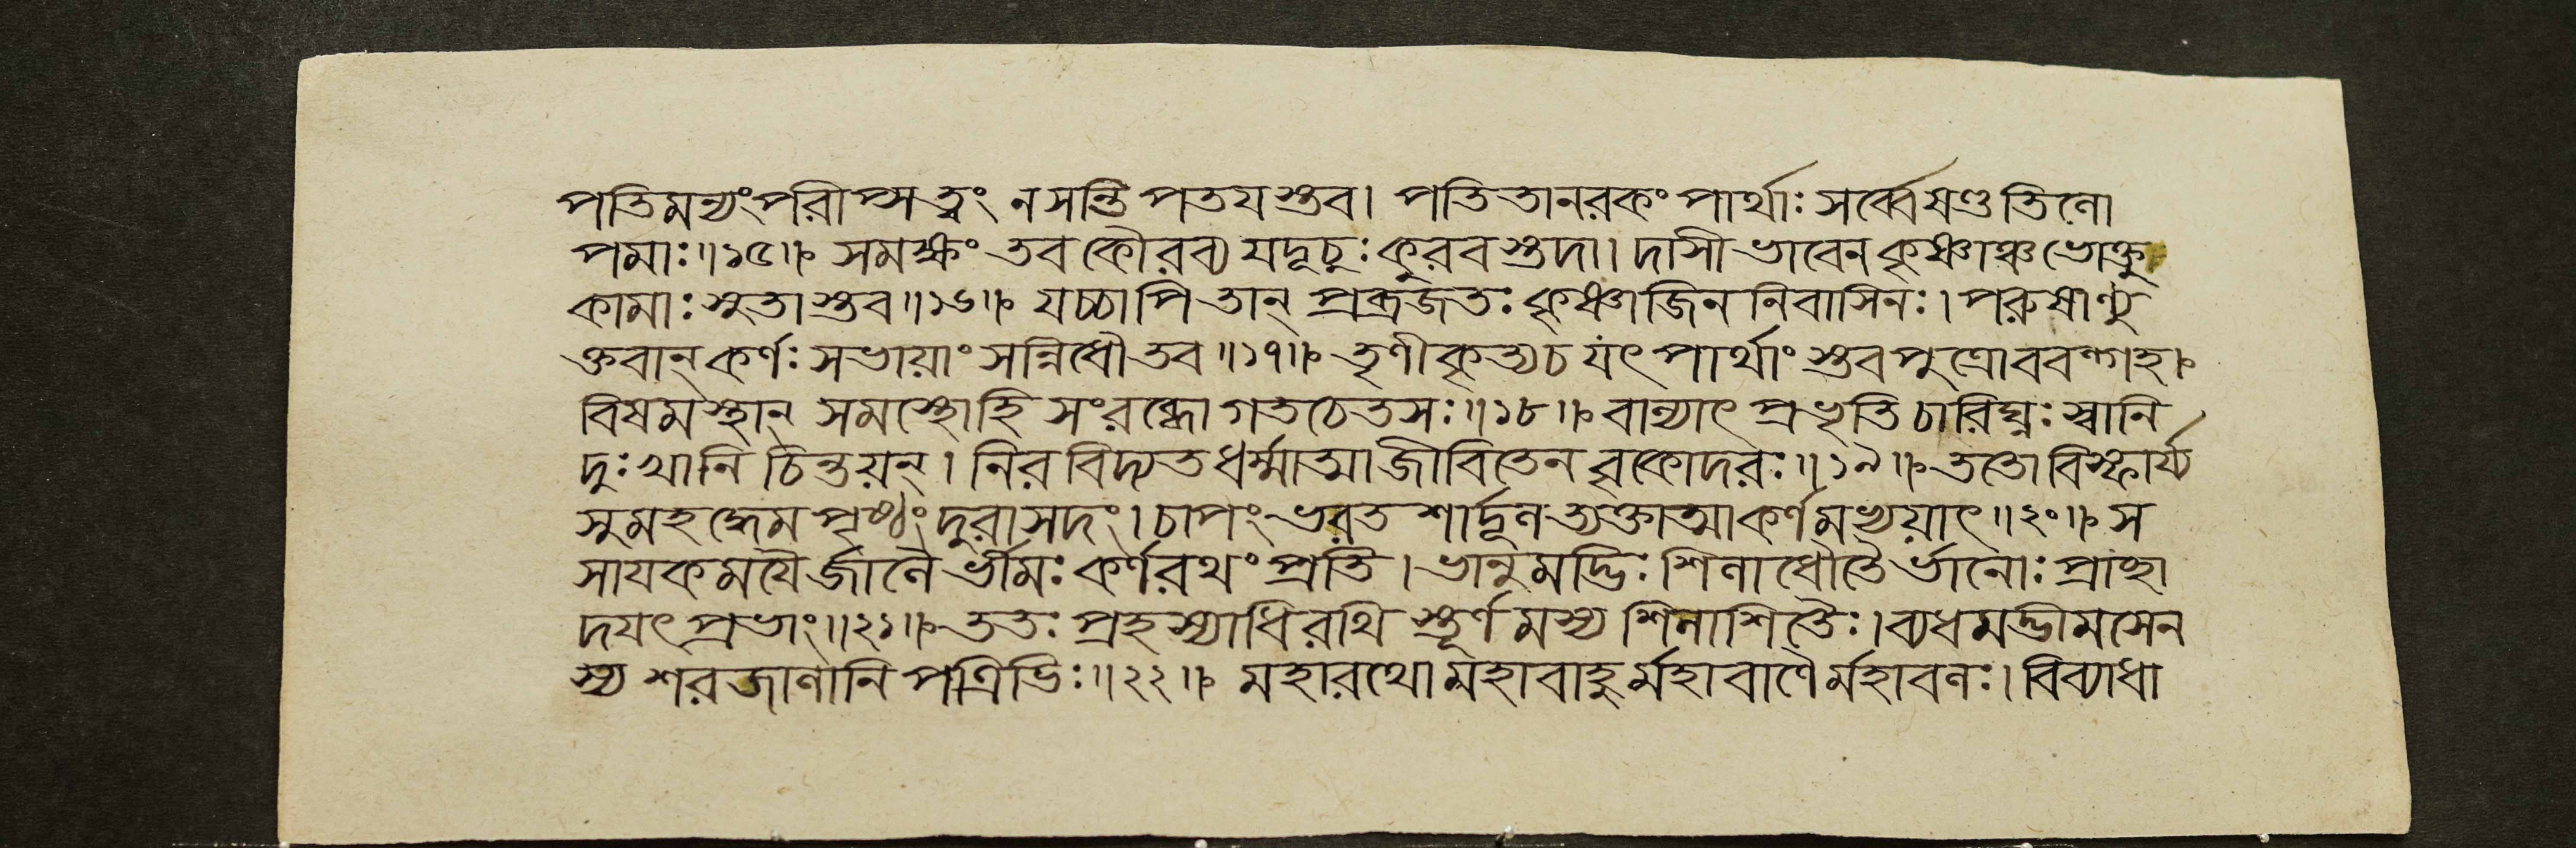 পতিমন্যংপরীপ্সত্বং ন সন্তি পতযস্তব। পতিতানরকং পার্থাঃ সর্ব্বেষণ্ডতিলো
পমাঃ॥১৫॥ সমক্ষং তব কৌরব্য যদূচুঃ কুরবস্তদা। দাসীভাবেন কৃষ্ণাঞ্চ ভোক্তু
কামাঃ সুতাস্তব॥১৬॥ যচ্চাপি তান্ প্রব্রজতঃ কৃষ্ণাজিন নিবাসিনঃ। পরুষাণ্যু
ক্তবান্ কর্ণঃ সভায়াং সন্নিধৌ তব॥১৭॥ তৃণীকৃত্য চ যৎ পার্থাংস্তব পুত্রো ববল্গহ।
বিষমস্থান্ সমস্থোহি সংরব্ধো গতচেতসঃ॥১৮॥ বাল্যাৎ প্রভৃতি চারিঘ্নঃ স্বানি
দুঃখানি চিন্তয়ন্। নিরবিদ্যত ধর্ম্মাত্মা জীবিতেন বৃকোদরঃ॥১৯॥ ততো বিস্ফার্য্য
সুমহদ্ধেমপৃষ্ঠং দুরাসদং। চাপং ভরত শার্দূল ত্যক্তাত্মা কর্ণমভ্যয়াৎ॥২০॥ স
সাযকমযৈর্জালৈর্ভীমঃ কর্ণরথং প্রতি। ভানুমদ্ভিঃ শিলাধৌতৈর্ভানোঃ প্রাচ্ছা
দযৎ প্রভাং॥২১॥ ততঃ প্রহস্যাধিরথিস্তূর্ণমস্য শিলাশিতৈঃ। ব্যধমদ্ভীমসেন
স্য শরজালানি পত্রিভিঃ॥২২॥ মহারথো মহাবাহুর্মহাবাণৈর্মহাবলঃ। বিব্যাধা